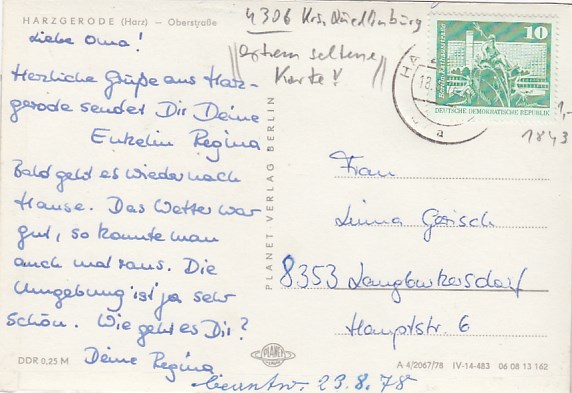 HARZGERODE (Harz) – Oberstraße
4306 Krs. Quedlinburg
extrem seltene
Karte!
Liebe Oma!
Herzliche Grüße aus Harz-
gerode sendet Dir Deine
Enkelin Regina
Bald geht es wieder nach
Hause. Das Wetter war
gut, so konnte man
auch mal raus. Die
Umgebung ist ja sehr
schön. Wie geht es Dir?
Deine Regina
beantw. 23.8.78
PLANET VERLAG BERLIN
10
Berlin, Rathausstraße
DEUTSCHE DEMOKRATISCHE REPUBLIK
HA
18.
a
1,-
1843
Frau
Linna Görisch
8353 Langburkersdorf
Hauptstr. 6
DDR 0,25 M
PLANET
A 4/2067/78 IV-14-483 06 08 13 162